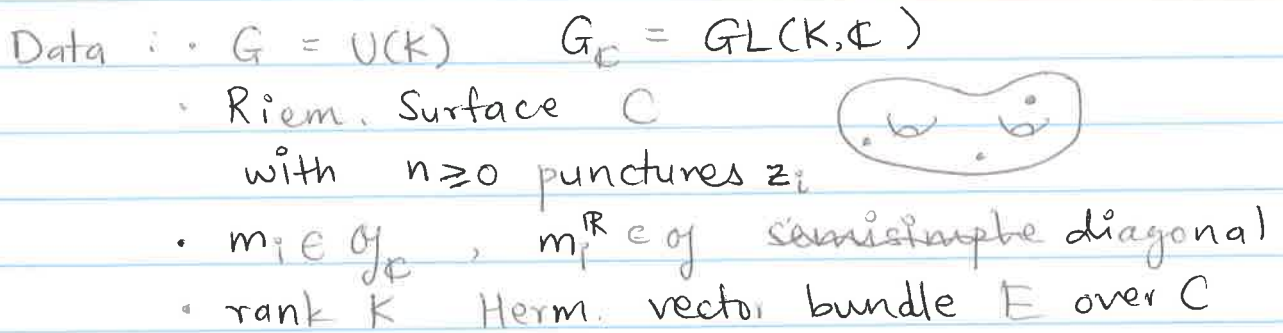 Data : · G = U(K) G_ℂ = GL(K,ℂ)
· Riem. Surface C
with n⩾0 punctures z_i
· m_i ∈ 𝔤_ℂ , m_i^ℝ ∈ 𝔤 ~~semisimple~~ diagonal
· rank K Herm. vector bundle E over C